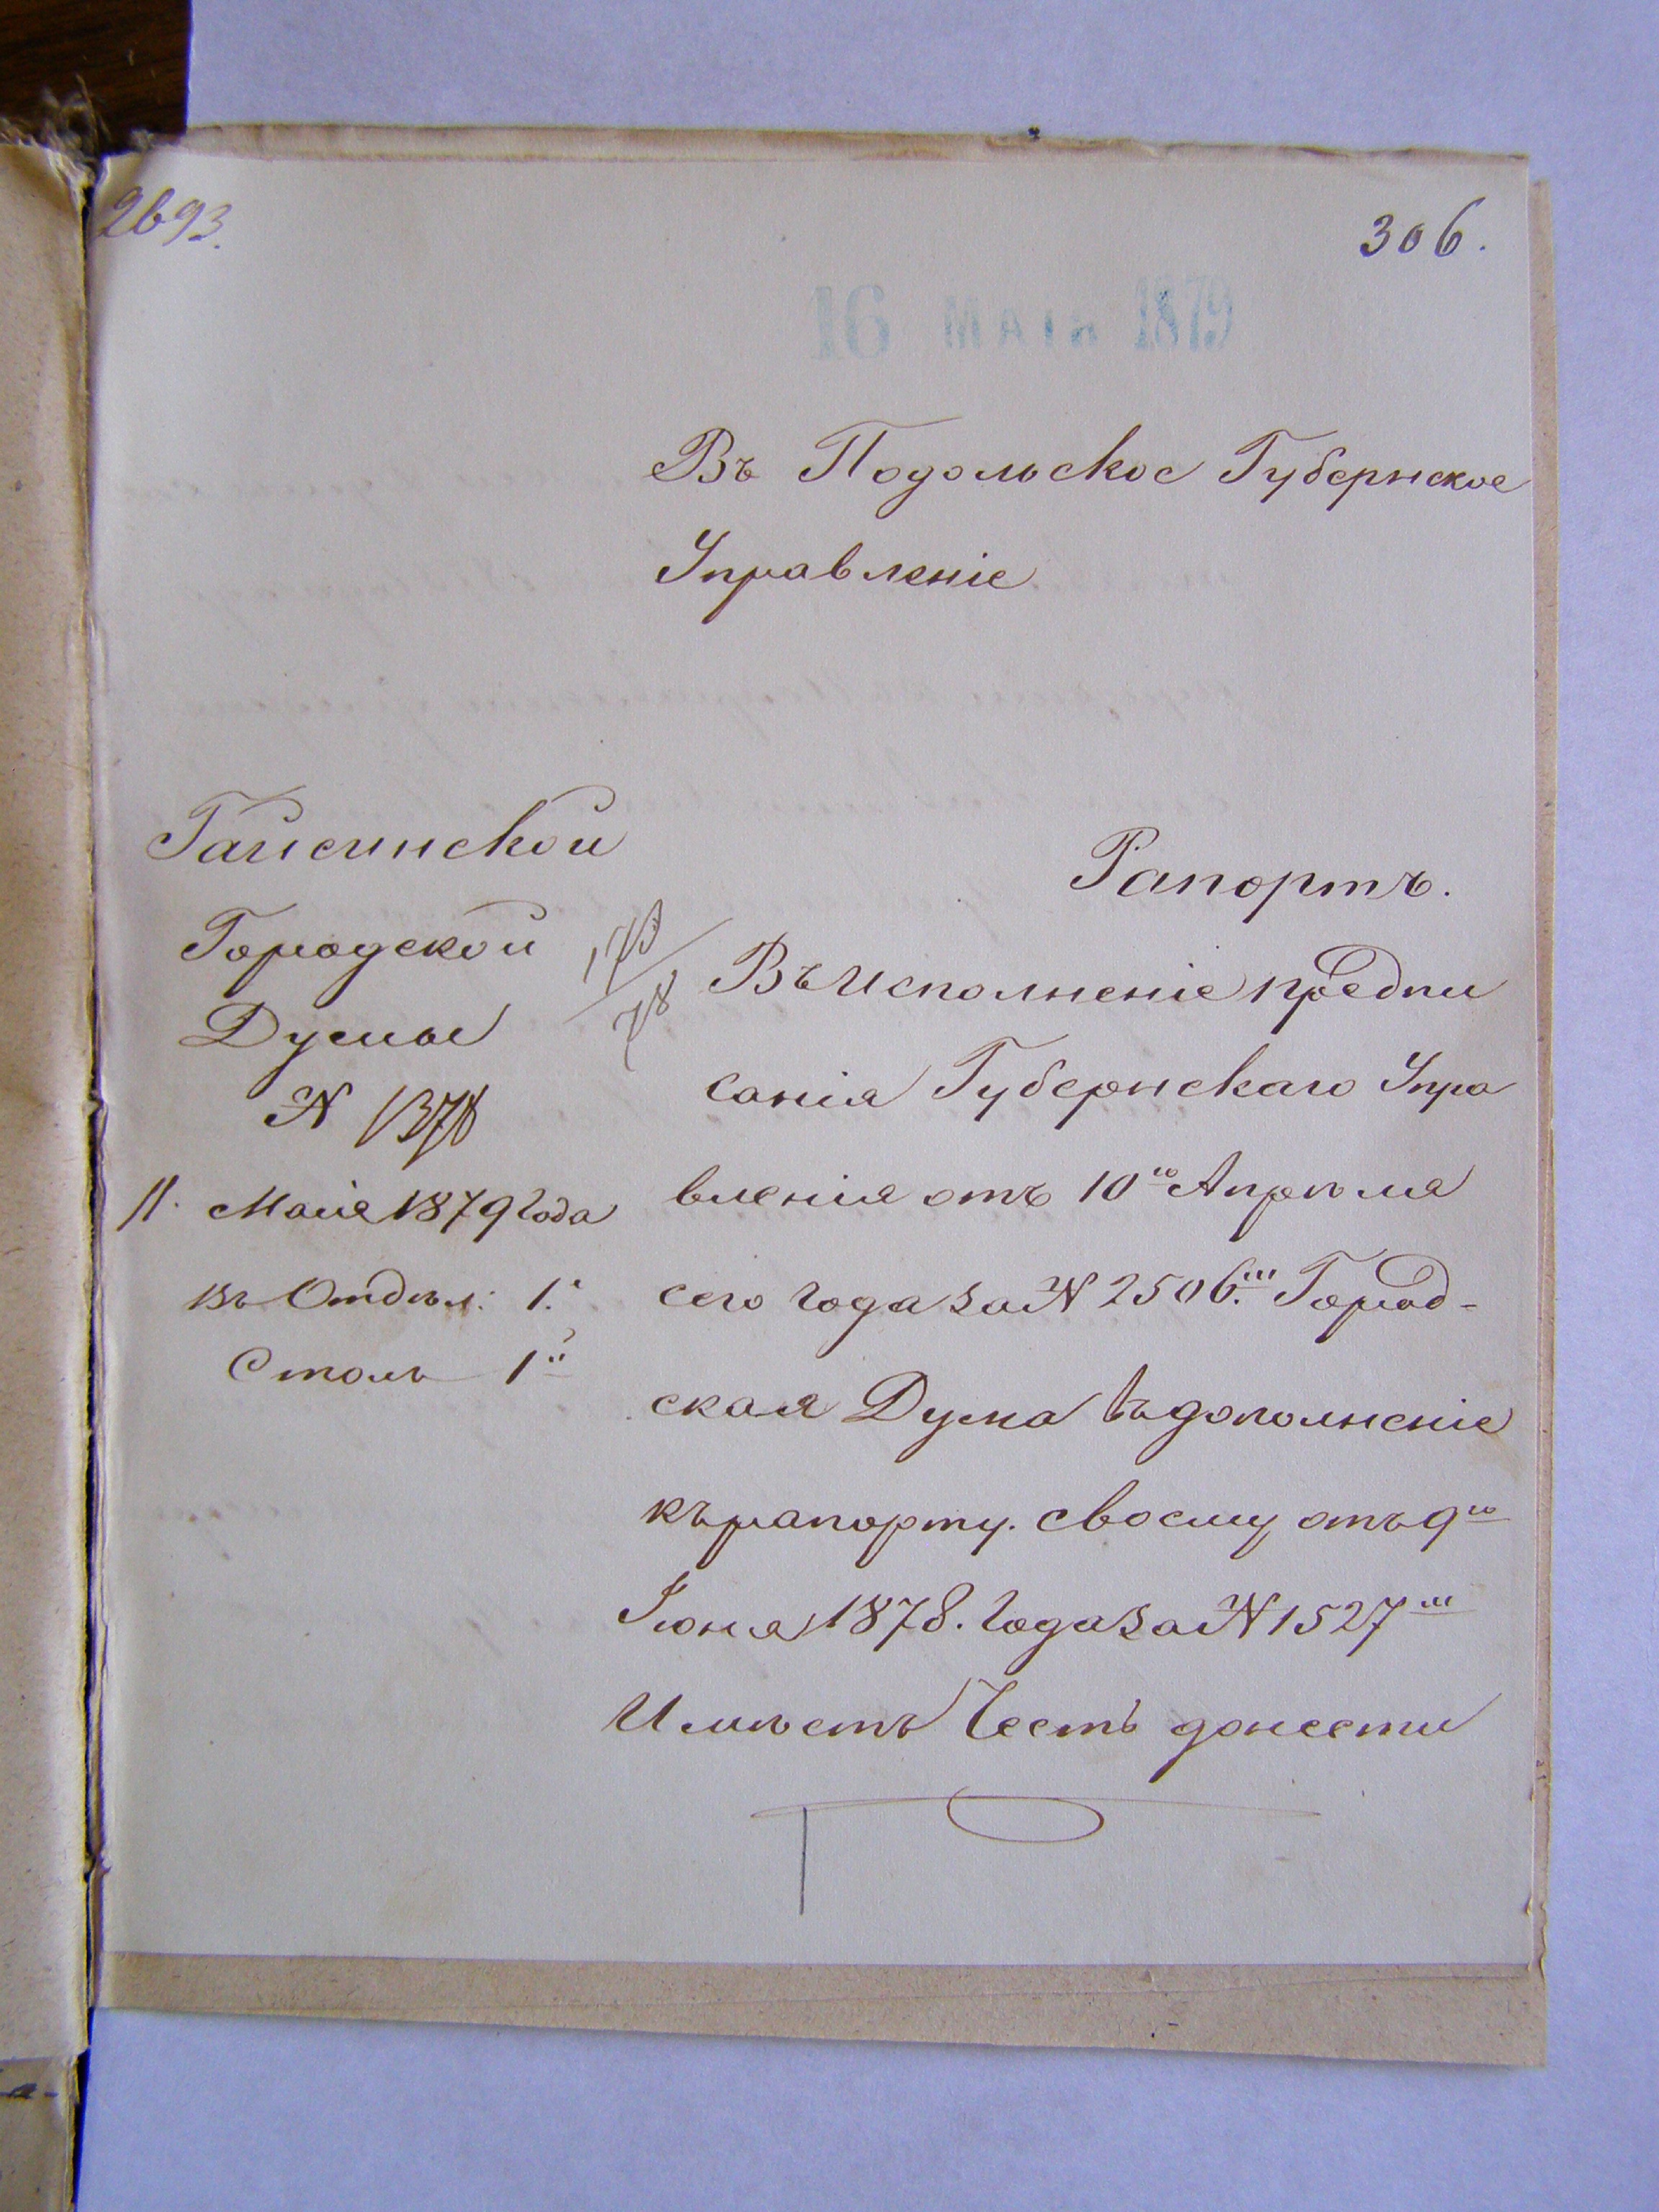 2693.
306.
16 МАІЯ 1879
Въ Подольское Губернское
Управленіе
Гайсинской
Городской
Думы
№ 1378
11. Маія 1879 Года
въ Отдѣл: 1.
Столъ 1й
Рапортъ.
Въ Исполненіе предпи
санія Губернскаго Упра
вленія отъ 10го Апрѣля
сего Года за № 2506.м Город-
ская Дума въ дополненіе
къ рапорту. своему отъ 9го
Іюня 1878. Года за № 1527м
Имѣетъ Честь донести